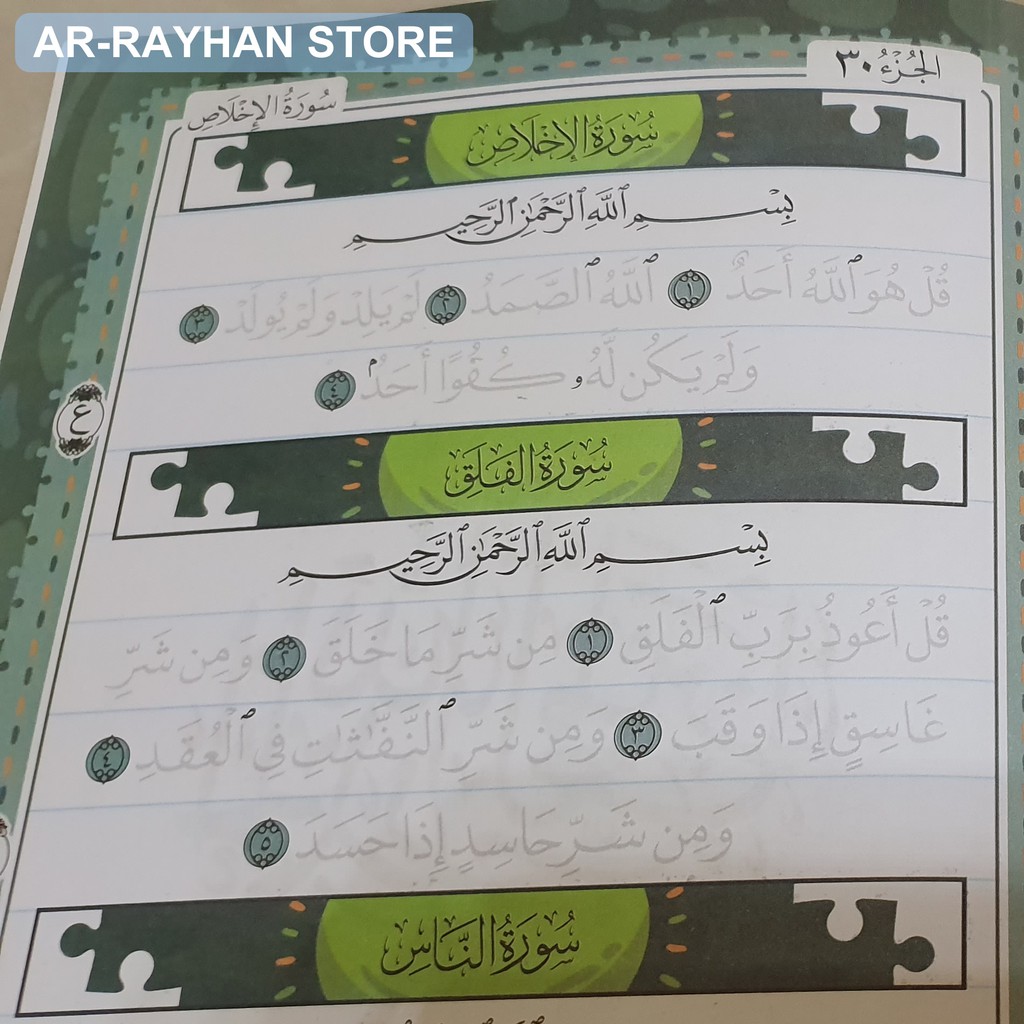 AR-RAYHAN STORE
الجُزْءُ ٣٠
سُورَةُ الإِخْلَاصِ
سُورَةُ الإِخْلَاصِ
بِسْمِ ٱللَّهِ ٱلرَّحْمَٰنِ ٱلرَّحِيمِ
قُلْ هُوَ ٱللَّهُ أَحَدٌ ١ ٱللَّهُ ٱلصَّمَدُ ٢ لَمْ يَلِدْ وَلَمْ يُولَدْ ٣
وَلَمْ يَكُن لَّهُۥ كُفُوًا أَحَدٌۢ ٤
ع
سُورَةُ الفَلَقِ
بِسْمِ ٱللَّهِ ٱلرَّحْمَٰنِ ٱلرَّحِيمِ
قُلْ أَعُوذُ بِرَبِّ ٱلْفَلَقِ ١ مِن شَرِّ مَا خَلَقَ ٢ وَمِن شَرِّ
غَاسِقٍ إِذَا وَقَبَ ٣ وَمِن شَرِّ ٱلنَّفَّٰثَٰتِ فِي ٱلْعُقَدِ ٤
وَمِن شَرِّ حَاسِدٍ إِذَا حَسَدَ ٥
سُورَةُ النَّاسِ